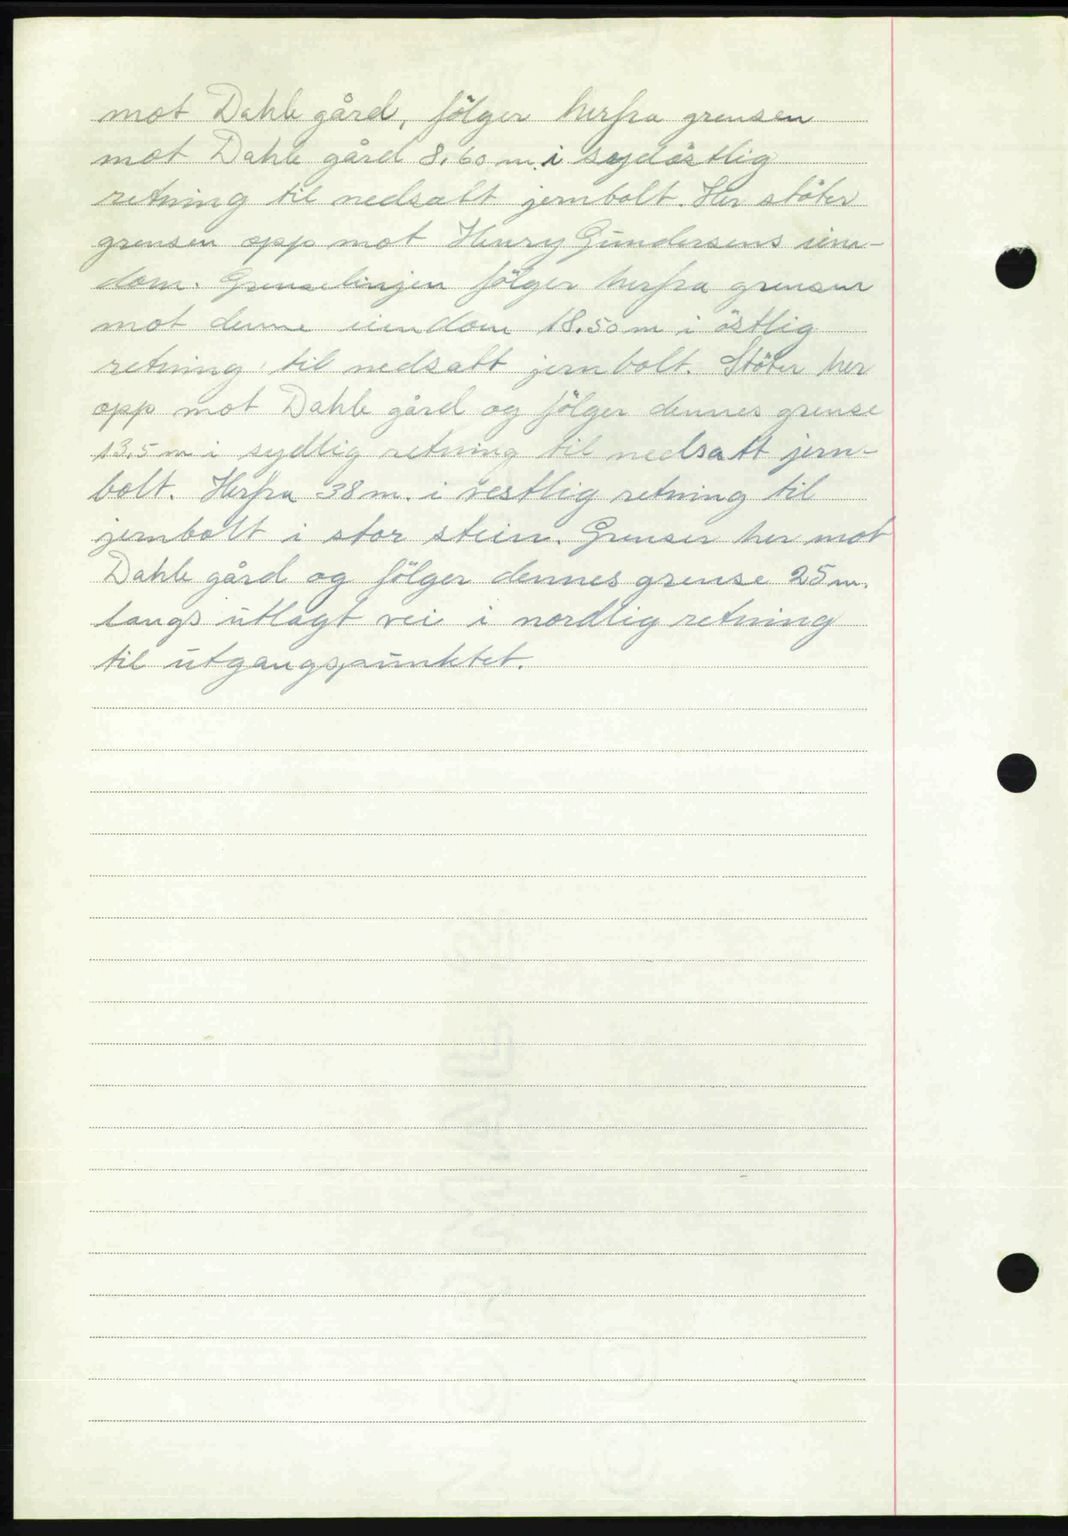 mot Dahle gård, fölger herfra grensen
mot Dahle gård 8.60 m. i sydöstlig
retning til nedsatt jernbolt. Her stöter
grensen opp mot Henry Gundersens eien-
dom. Grenselinjen fölger herfra grensen
mot denne eiendom 18.50 m i östlig
retning til nedsatt jernbolt. Stöter her
opp mot Dahle gård og fölger dennes grense
13,5 m i sydlig retning til nedsatt jern-
bolt. Herfra 38 m. i vestlig retning til
jernbolt i stor stein. Grenser her mot
Dahle gård og fölger dennes grense 25 m.
langs utlagt vei i nordlig retning
til utgangspunktet.